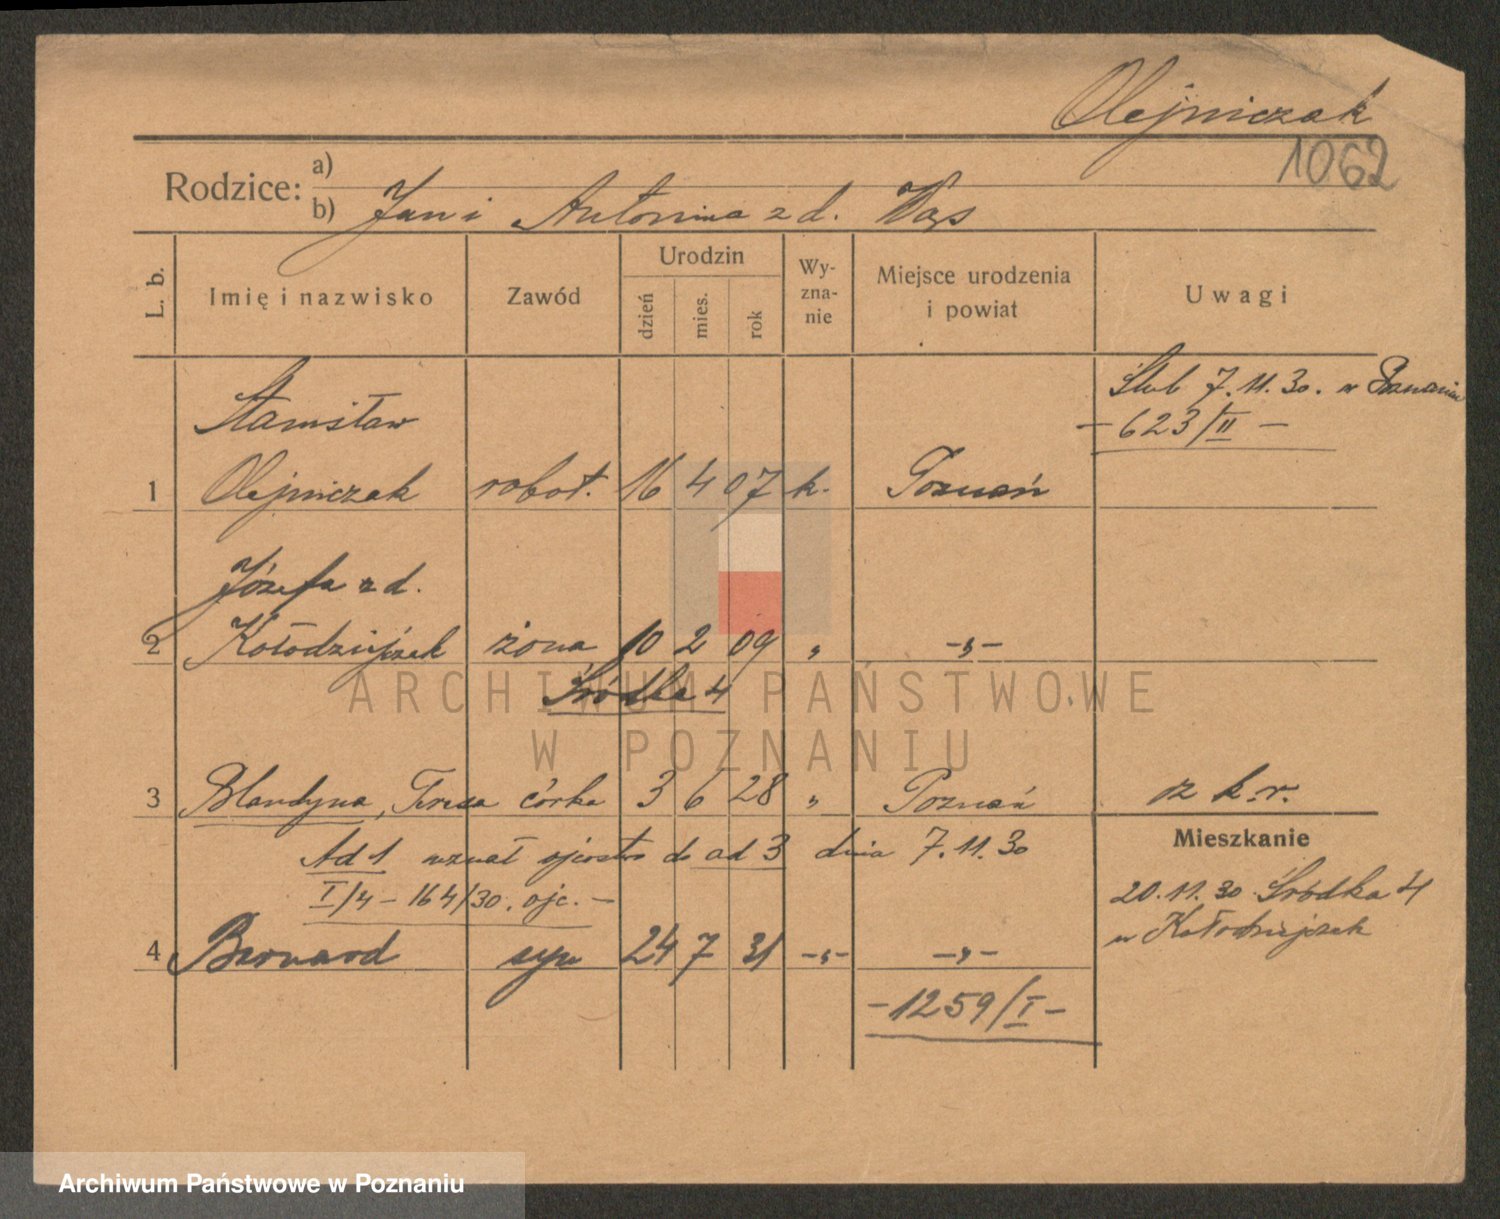 Olejniczak
1062
Rodzice: a)
b) Jan i Antonina z d. Waś
L. b.
Imię i nazwisko
Zawód
Urodzin
dzień
mies.
rok
Wy-
zna-
nie
Miejsce urodzenia
i powiat
Uwagi
Ślub 7.11.30. w Poznaniu
- 623/II -
Stanisław
1 Olejniczak robot. 16 4 07 k. Poznań
Józefa z d.
2 Kołodziejczak żona 10 2 09 „ -„-
Śródka 4
3 Blandyna, Teresa córka 3 6 28 „ Poznań z k.r.
Ad 1 uznał ojcostwo do ad 3 dnia 7.11.30
I/4 - 164/30. ojc. -
Mieszkanie
20.11.30 Śródka 4
u Kołodziejczak
4 Bernard syn 24 7 31 -„- -„-
- 1259/I -
ARCHIWUM PAŃSTWOWE
W POZNANIU
Archiwum Państwowe w Poznaniu